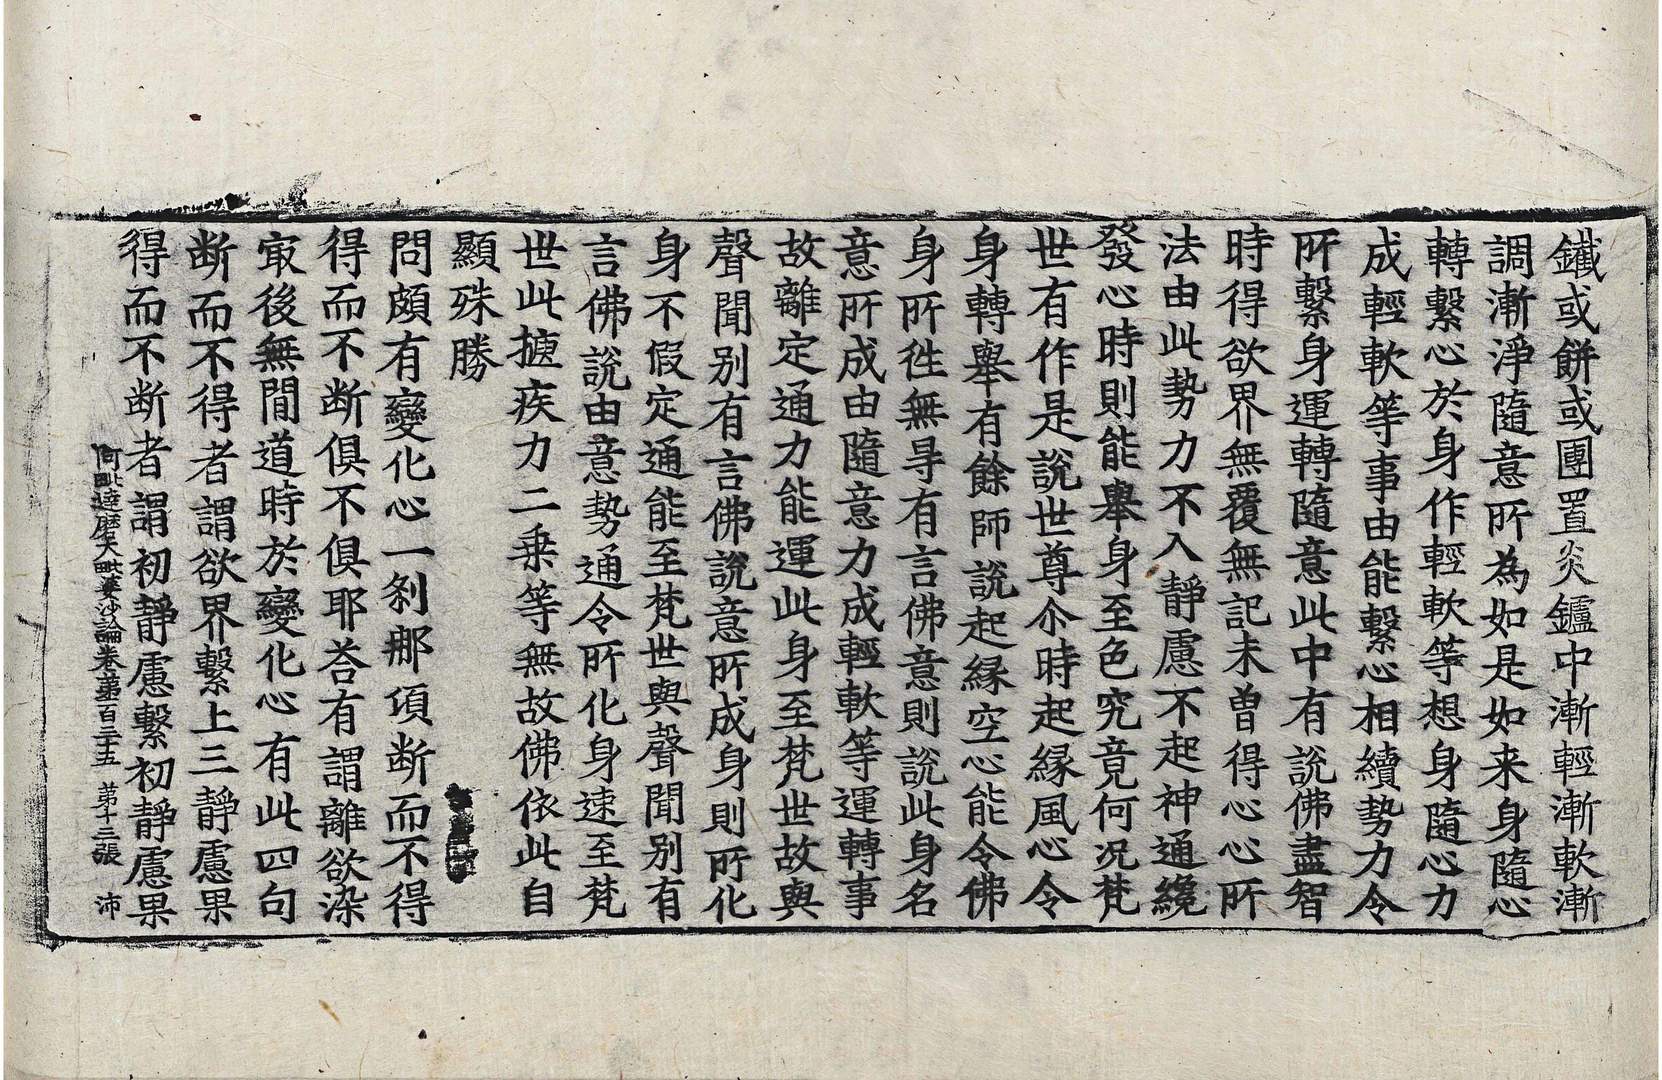 鐵或餅或團置炎鑪中漸輕漸軟漸
調漸淨隨意所為如是如来身隨心
轉繫心於身作輕軟等想身隨心力
成輕軟等事由能繫心相續勢力令
所繫身運轉隨意此中有說佛盡智
時得欲界無覆無記未曾得心心所
法由此勢力不入靜慮不起神通纔
發心時則能舉身至色究竟何况梵
世有作是說世尊尒時起緣風心令
身轉舉有餘師說起緣空心能令佛
身所徃無㝵有言佛意則說此身名
意所成由隨意力成輕軟等運轉事
故離定通力能運此身至梵世故與
聲聞別有言佛說意所成身則所化
身不假定通能至梵世與聲聞別有
言佛說由意勢通令所化身速至梵
世此摭疾力二乗等無故佛依此自
顯殊勝
問頗有變化心一剎那頃断而不得
得而不断俱不俱耶荅有謂離欲染
㝡後無間道時於變化心有此四句
断而不得者謂欲界繫上三靜慮果
得而不断者謂初靜慮繫初靜慮果
阿毗達磨大毗婆沙論卷第百三十五 第十二張 沛